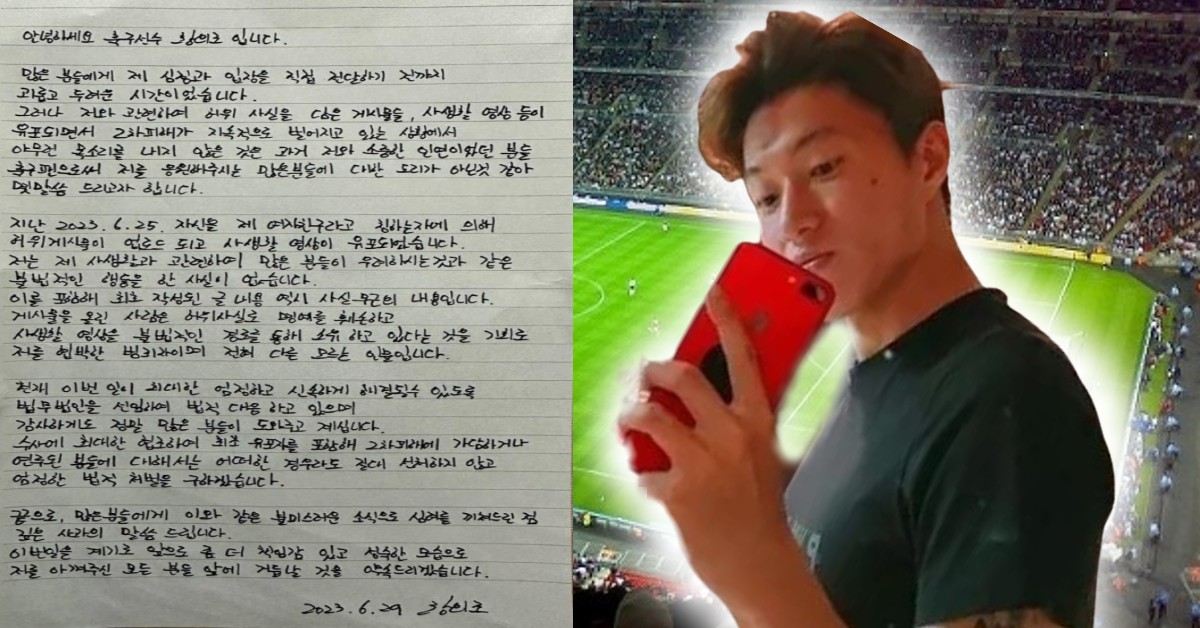 안녕하세요 축구선수 황의조 입니다.
많은 분들에게 제 심정과 입장을 직접 전달하기 전까지
괴롭고 두려운 시간이었습니다.
그러나 저와 관련하여 허위 사실을 담은 게시물들, 사생활 영상 등이
유포되면서 2차피해가 지속적으로 벌어지고 있는 상황에서
아무런 목소리를 내지 않은 것은 과거 저와 소중한 인연이었던 분들
축구팬으로써 저를 응원해주시는 많은분들에 대한 도리가 아닌것 같아
몇말씀 드리고자 합니다.
지난 2023.6.25. 자신을 제 여자친구라고 칭하는자에 의해
허위게시물이 업로드 되고 사생활 영상이 유포되었습니다.
저는 제 사생활과 관련하여 많은 분들이 우려하시는것과 같은
불법적인 행동을 한 사실이 없습니다.
이를 포함해 최초 작성된 글 내용 역시 사실 무근의 내용입니다.
게시물을 올린 사람은 허위사실로 명예를 훼손하고
사생활 영상을 불법적인 경로를 통해 소유 하고 있다는 것을 기회로
저를 협박한 범죄자이며 전혀 다음 모르는 인물입니다.
현재 이번 일이 최대한 엄정하고 신속하게 해결될수 있도록
법무법인을 선임하여 법적 대응 하고 있으며
감사하게도 정말 많은 분들이 도와주고 계십니다.
수사에 최대한 협조하여 최초 유포자를 포함해 2차피해에 가담하거나
연루된 분들에 대해서는 어떠한 경우라도 절대 선처하지 않고
엄정한 법적 처벌을 구하겠습니다.
끝으로, 많은분들에게 이와 같은 불미스러운 소식으로 심려를 끼쳐드린 점
깊은 사과의 말씀 드립니다.
이번일을 계기로 앞으로 좀 더 책임감 있고 성숙한 모습으로
저를 아껴주신 모든 분들 앞에 거듭날 것을 약속드리겠습니다.
2023.6.29 황의조